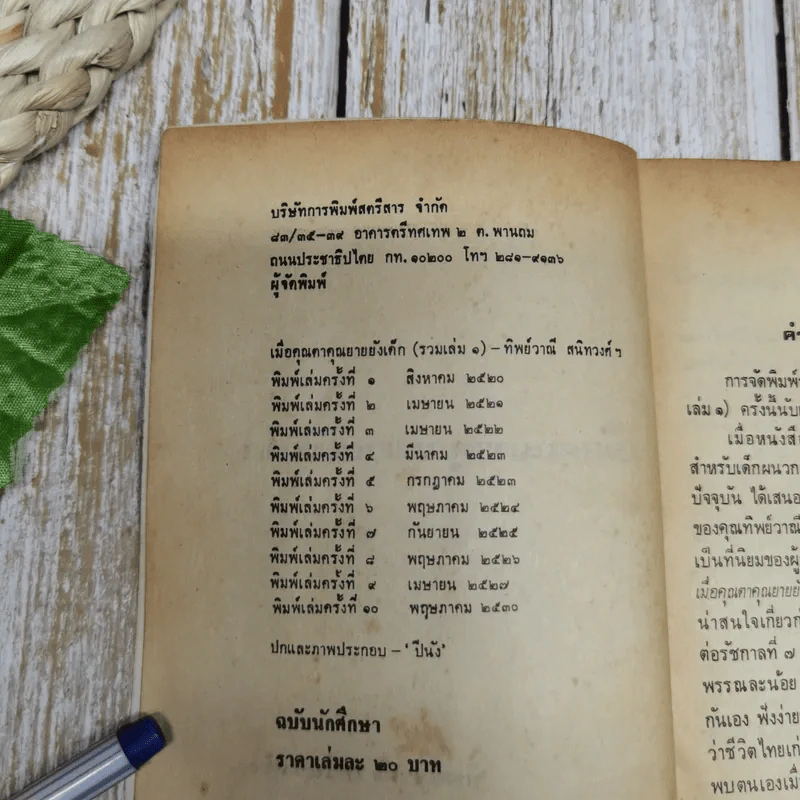 บริษัทการพิมพ์สตรีสาร จำกัด
๘๓/๓๕-๓๙ อาคารตรีทศเทพ ๒ ต. พานถม
ถนนประชาธิปไตย กท. ๑๐๒๐๐ โทฯ ๒๘๑-๙๑๓๖
ผู้จัดพิมพ์
เมื่อคุณตาคุณยายยังเด็ก (รวมเล่ม ๑) - ทิพย์วาณี สนิทวงศ์ฯ
พิมพ์เล่มครั้งที่ ๑ สิงหาคม ๒๕๒๐
พิมพ์เล่มครั้งที่ ๒ เมษายน ๒๕๒๑
พิมพ์เล่มครั้งที่ ๓ เมษายน ๒๕๒๒
พิมพ์เล่มครั้งที่ ๔ มีนาคม ๒๕๒๓
พิมพ์เล่มครั้งที่ ๕ กรกฎาคม ๒๕๒๓
พิมพ์เล่มครั้งที่ ๖ พฤษภาคม ๒๕๒๔
พิมพ์เล่มครั้งที่ ๗ กันยายน ๒๕๒๕
พิมพ์เล่มครั้งที่ ๘ พฤษภาคม ๒๕๒๖
พิมพ์เล่มครั้งที่ ๙ เมษายน ๒๕๒๗
พิมพ์เล่มครั้งที่ ๑๐ พฤษภาคม ๒๕๓๐
ปกและภาพประกอบ - 'ปีนัง'
ฉบับนักศึกษา
ราคาเล่มละ ๒๐ บาท
การจัดพิมพ์
เล่ม ๑) ครั้งนี้นับ
เมื่อหนังสือ
สำหรับเด็กผนวก
ปัจจุบัน ได้เสนอ
ของคุณทิพย์วาณี
เป็นที่นิยมของผู้
เมื่อคุณตาคุณยายยัง
น่าสนใจเกี่ยวกับ
ต่อรัชกาลที่ ๗
พรรณละน้อย
กันเอง ฟังง่าย
ว่าชีวิตไทยเก่
พบตนเองเมื่